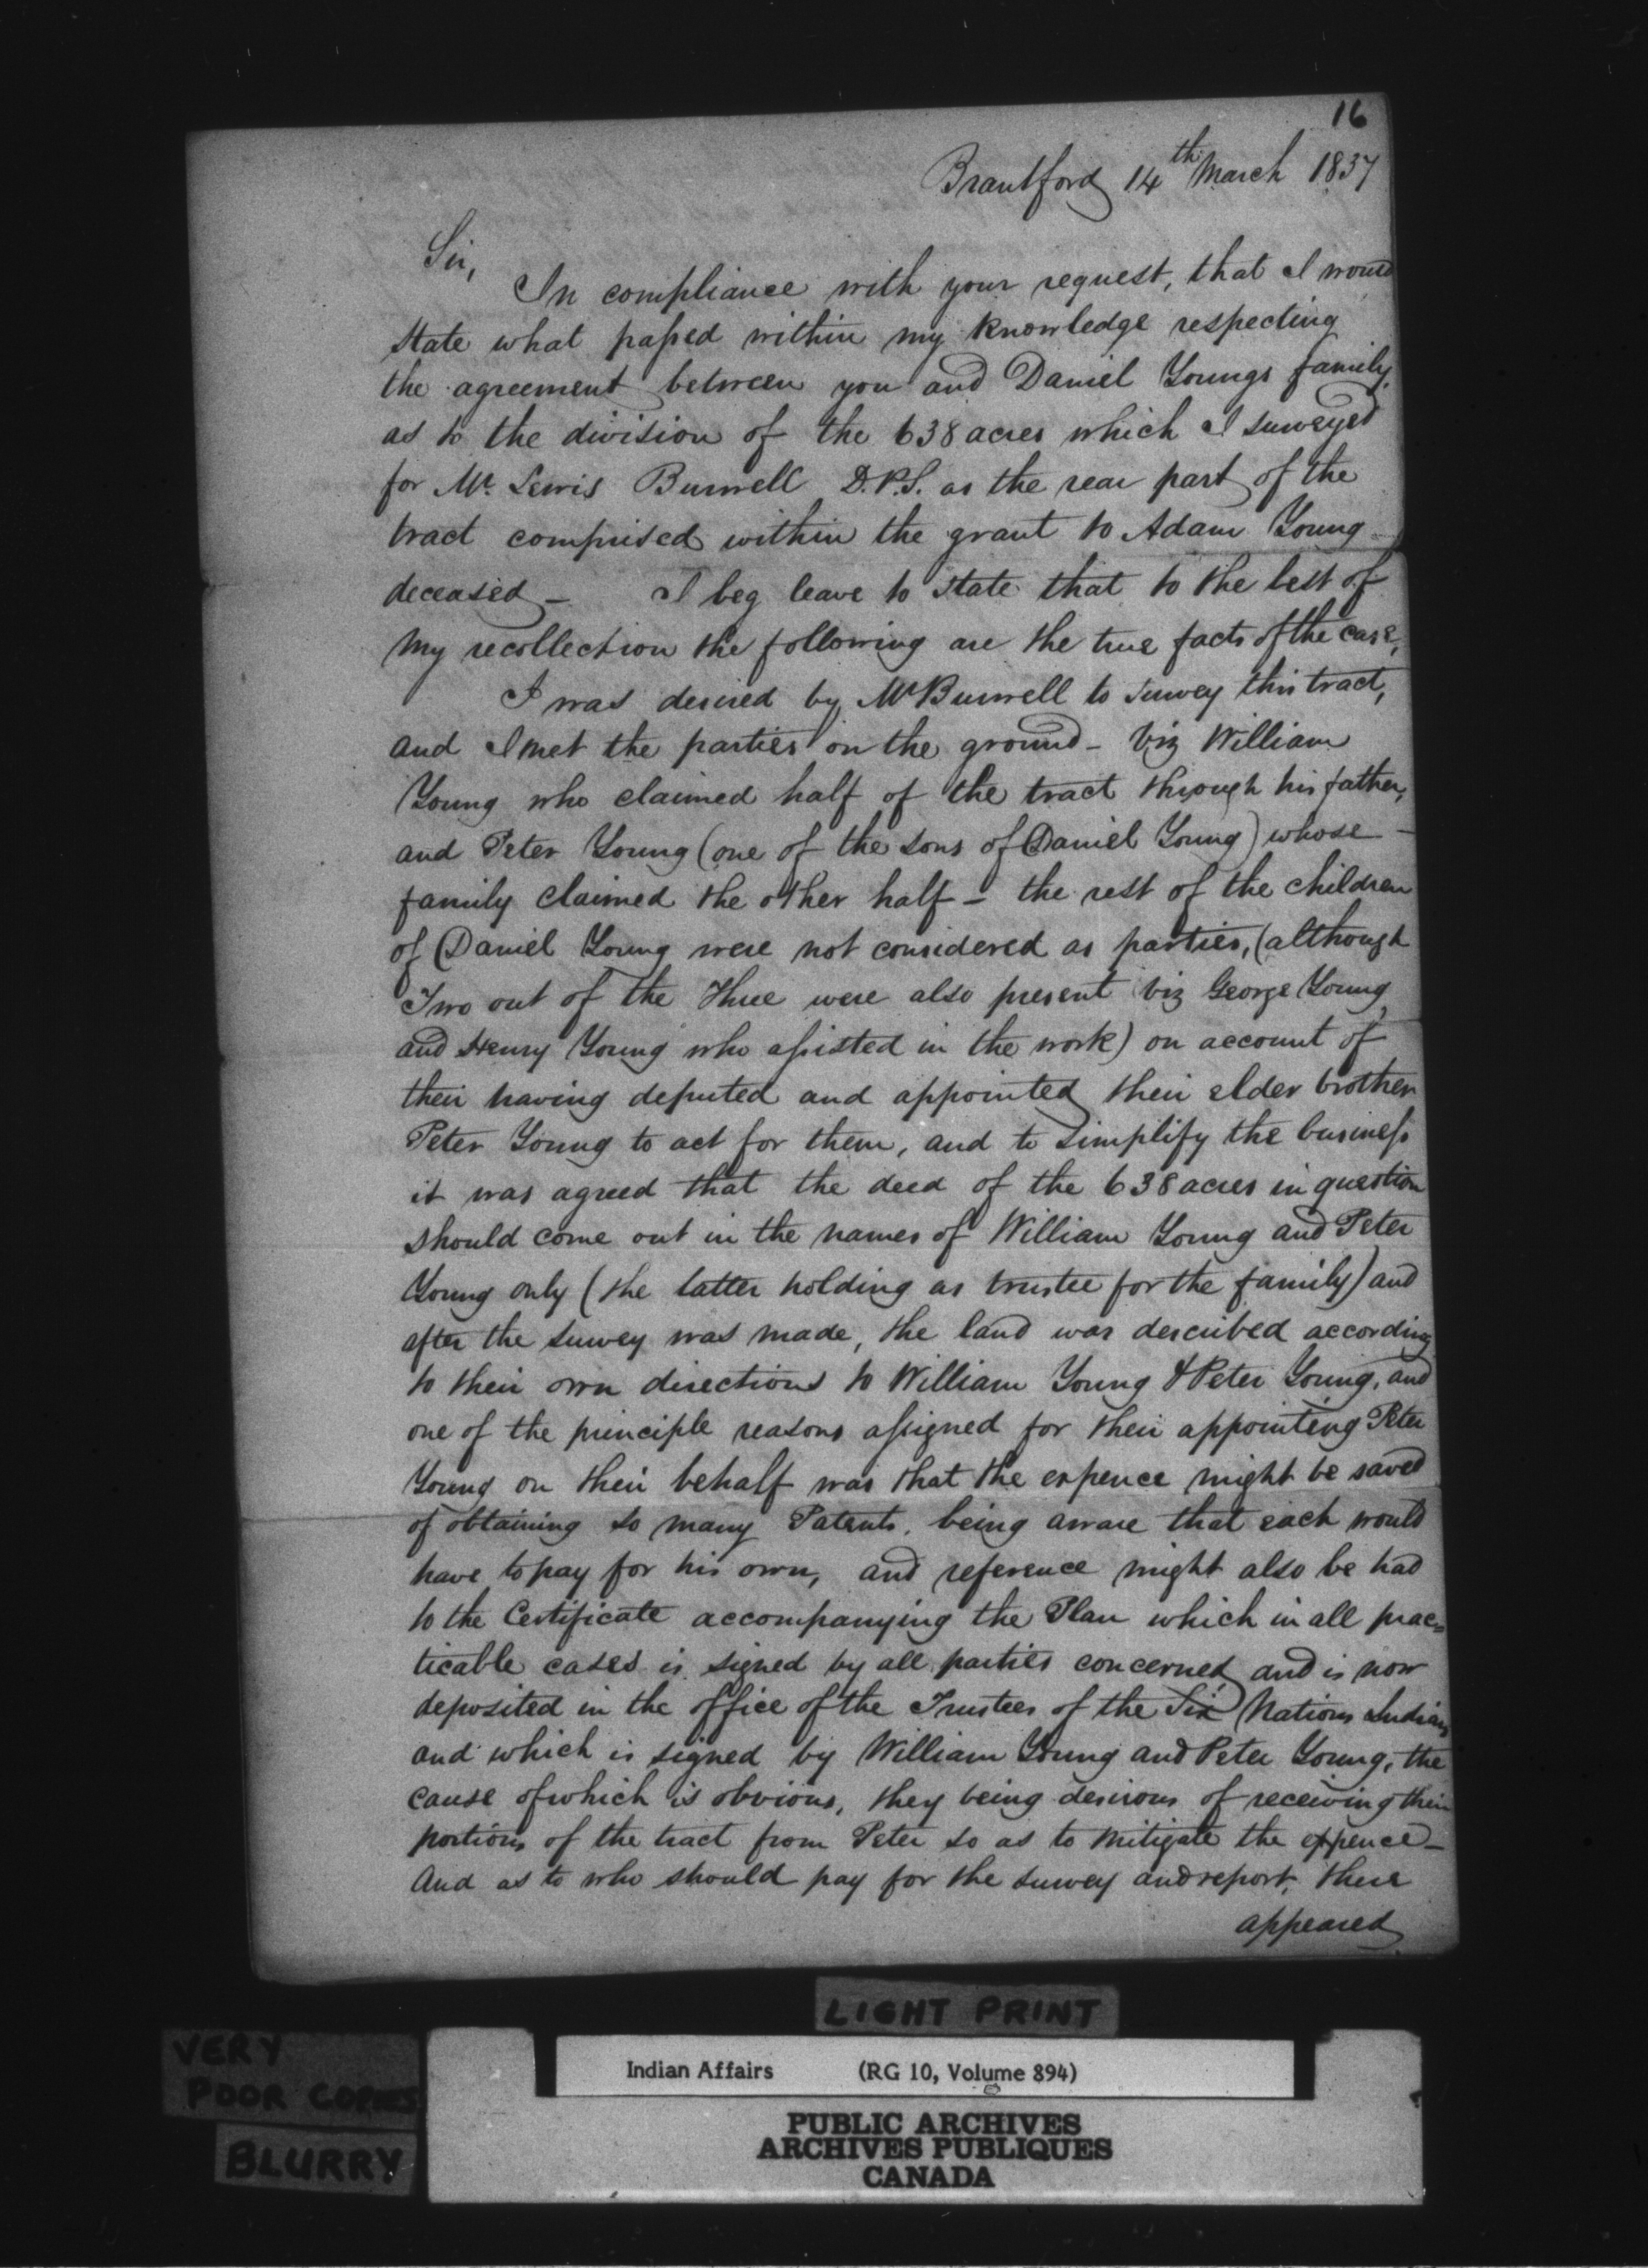 16
Brantford 14th March 1837
Sir,
In compliance with your request, that I would
state what passed within my knowledge respecting
the agreement between you and Daniel Youngs family,
as to the division of the 638 acres which I surveyed
for Mr. Lewis Burwell D.P.S. as the rear part of the
tract comprised within the grant to Adam Young
deceased – I beg leave to state that to the best of
my recollection the following are the true facts of the case,
I was desired by Mr Burwell to survey this tract,
and I met the parties on the ground – viz William
Young who claimed half of the tract through his father,
and Peter Young (one of the sons of Daniel Young) whose –
family claimed the other half – the rest of the children
of Daniel Young were not considered as parties, (although
Two out of the three were also present viz George Young
and Henry Young who assisted in the work) on account of
their having deputed and appointed their elder brother
Peter Young to act for them, and to simplify the business
it was agreed that the deed of the 638 acres in question
should come out in the names of William Young and Peter
Young only (the latter holding as trustee for the family) and
after the survey was made, the land was described according
to their own directions to William Young & Peter Young, and
one of the principle reasons assigned for their appointing Peter
Young on their behalf was that the expence might be saved
of obtaining so many Patents, being aware that each would
have to pay for his own, and reference might also be had
to the Certificate accompanying the Plan which in all prac=
ticable cases is signed by all parties concerned and is now
deposited in the office of the Trustees of the Six Nations Indians
and which is signed by William Young and Peter Young, the
cause of which is obvious, they being desirous of receiving their
portions of the tract from Peter so as to mitigate the expence –
And as to who should pay for the survey and report, there
appeared
LIGHT PRINT
VERY
POOR COPIES
BLURRY
Indian Affairs (RG 10, Volume 894)
PUBLIC ARCHIVES
ARCHIVES PUBLIQUES
CANADA